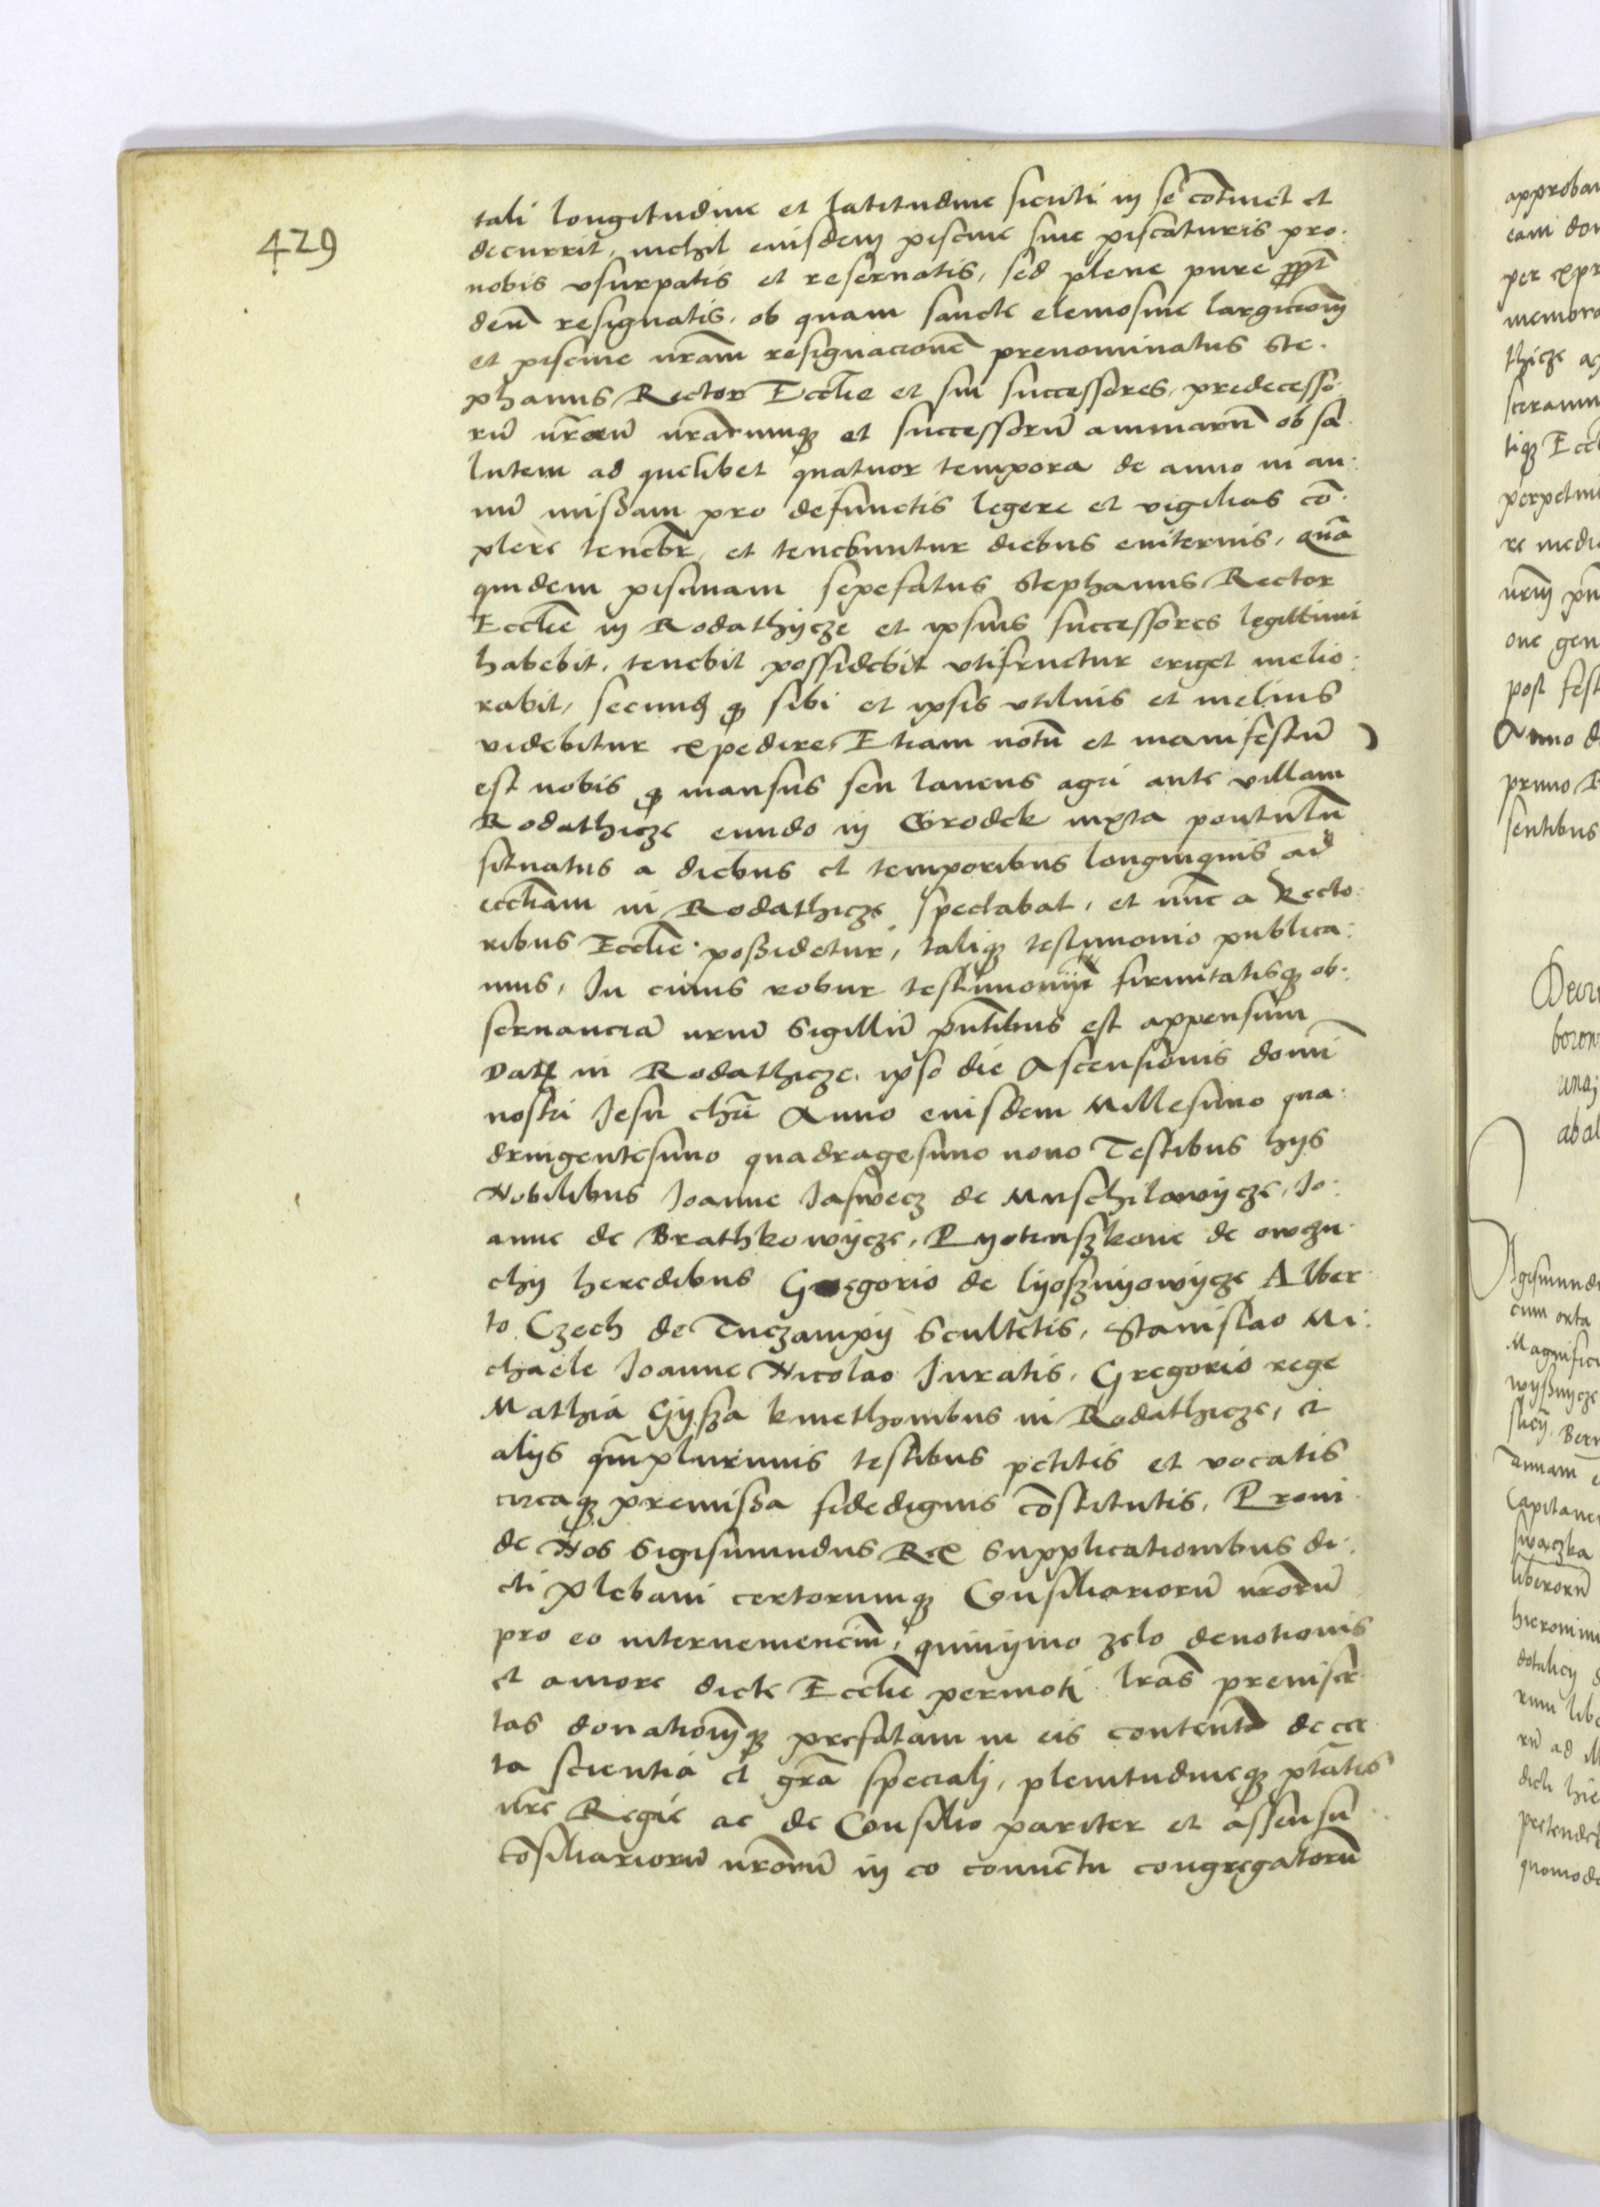 429
tali longitudine et latitudine sicuti in se cōtinet et
decurrit, nichil eiusdem piscine siue piscaturis pro:
nobis vsurpatis et reseruatis, sed plene pure ꝓpt̄
deū resignatis, ob quam sancte elemosine largicionē
et piscine nr̄am resignacionē prenominatus Ste:
phanus Rector Ecclīe et sui successores, predecesso
rū nr̄orū nr̄arumqꝫ et successorū animarū ob sa
lutem ad quelibet quatuor tempora de anno in an:
nū missam pro defunctis legere et vigilias cō:
plere tenebr̄, et tenebuntur diebus euiternis, quā
quidem piscinam sepefatus Stephanus Rector
Ecclīe in Rodathÿcze et ipsius successores legittimi
habebit, tenebit possidebit vtifruetur eriget melio:
rabit, secund̄ ꝙ sibi et ipsis vtilius et melius
videbitur expedire, Etiam notū et manifestū
est nobis ꝙ mansus seu laneus agri ante villam
Rodathicze eundo in Grodek iuxta pontulū
situatus a diebus et temporibus longinquis ad
eccliam in Rodathicze spectabat, et nūc a Recto:
ribus Ecclīe possidetur, taliqꝫ testimonio publica:
mus, In cuius robur testimonÿ firmitatisqꝫ ob:
seruanciā nrm̄ Sigillū pn̄tibus est appensum
Datꝭ in Rodathicze, ipso die Ascensionis domī
nostri Jesu chri Anno eiusdem Millesimo qua:
dringentesimo quadragesimo nono Testibus hÿs
Nobilibus Joanne Jaswecz de Muschilowÿcze, Jo:
anne de Brathkowÿcze, Pÿotraszkone de owczu
chÿ heredibus Gregorio de lÿoszniowÿcze Alber
to Czech de Tuczampÿ Scultetis, Stanislao Mi:
chaele Joanne Nicolao Juratis, Gregorio rege
Mathia Gÿsza kmethonibus in Rodathicze, et
alÿs qm̄plurimis testibus petitis et vocatis
circaqꝫ premissa fidedignis cōstitutis, Proin
de Nos Sigismundus Rex Supplicationibus di:
cti plebani certorumqꝫ Consiliariorū nr̄orū
pro eo interuenienciū, quinÿmo zelo deuotionis
et amore dicte Ecclīe permoti lr̄as preinser
tas donationēqꝫ prefatam in eis contentā de cer
ta scientia et gr̄a speciali, plenitudineqꝫ ptātis
nr̄e Regie ac de Consilio pariter et assensu
cōsiliariorū nr̄orū in eo conuentu congregatorū